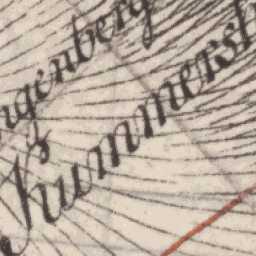 ngenberg
Kummerst